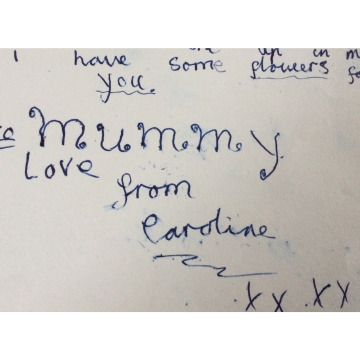 have some flowers
you.
Mummy
Love
from
Caroline
xx.xx